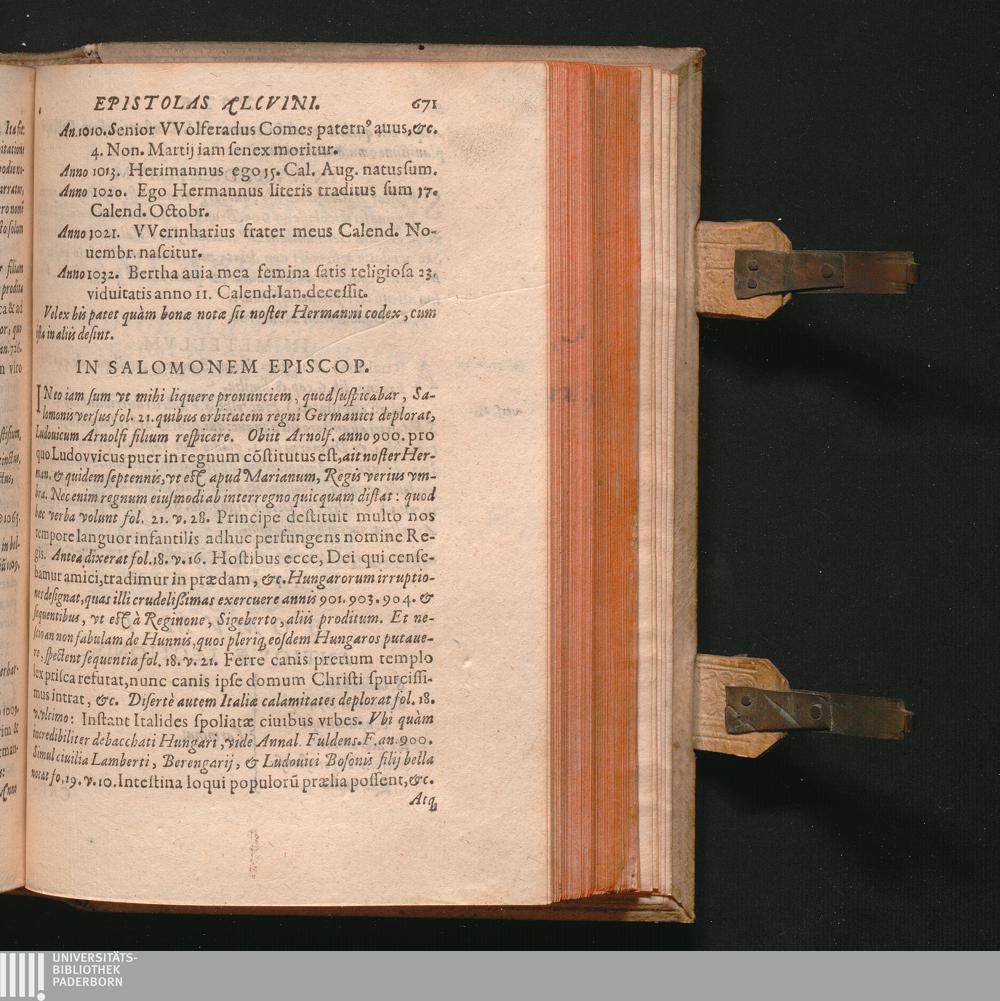 EPISTOLAS ALCVINI. 671
An. 1010. Senior VVolferadus Comes patern⁹ auus, &c.
4. Non. Martij iam ſenex moritur.
Anno 1013. Herimannus ego 15. Cal. Aug. natus ſum.
Anno 1020. Ego Hermannus literis traditus ſum 17.
Calend. Octobr.
Anno 1021. VVerinharius frater meus Calend. No-
uembr. naſcitur.
Anno 1032. Bertha auia mea femina ſatis religioſa 23.
viduitatis anno 11. Calend. Ian. deceſſit.
Vel ex his patet quàm bonæ notæ ſit noſter Hermanni codex, cum
iſta in aliis deſint.
IN SALOMONEM EPISCOP.
INeo iam ſum vt mihi liquere pronunciem, quod ſuſpicabar, Sa-
lomonis verſus fol. 21. quibus orbitatem regni Germanici deplorat,
Ludouicum Arnolfi filium reſpicere. Obiit Arnolf. anno 900. pro
quo Ludovvicus puer in regnum cōſtitutus eſt, ait noſter Her-
man. & quidem ſeptennis, vt eſt apud Marianum, Regis verius vm-
bra. Nec enim regnum eiuſmodi ab interregno quicquam diſtat: quod
hæc verba volunt fol. 21. v. 28. Principe deſtituit multo nos
tempore languor infantilis adhuc perfungens nomine Re-
gis. Antea dixerat fol. 18. v. 16. Hoſtibus ecce, Dei qui cenſe-
bamur amici, tradimur in prædam, &c. Hungarorum irruptio-
nes deſignat, quas illi crudelißimas exercuere annis 901. 903. 904. &
ſequentibus, vt eſt à Reginone, Sigeberto, aliis proditum. Et ne-
ſcio an non fabulam de Hunnis, quos pleriq; eoſdem Hungaros putaue-
re, ſpectent ſequentia fol. 18. v. 21. Ferre canis pretium templo
lex priſca refutat, nunc canis ipſe domum Chriſti ſpurciſſi-
mus intrat, &c. Diſertè autem Italiæ calamitates deplorat fol. 18.
v. vltimo: Inſtant Italides ſpoliatæ ciuibus vrbes. Vbi quàm
incredibiliter debacchati Hungari, vide Annal. Fuldens. F. an. 900.
Simul ciuilia Lamberti, Berengarij, & Ludouici Boſonis filij bella
notat fo. 19. v. 10. Inteſtina loqui populorū prælia poſſent, &c.
Atq;
UNIVERSITÄTS-
BIBLIOTHEK
PADERBORN